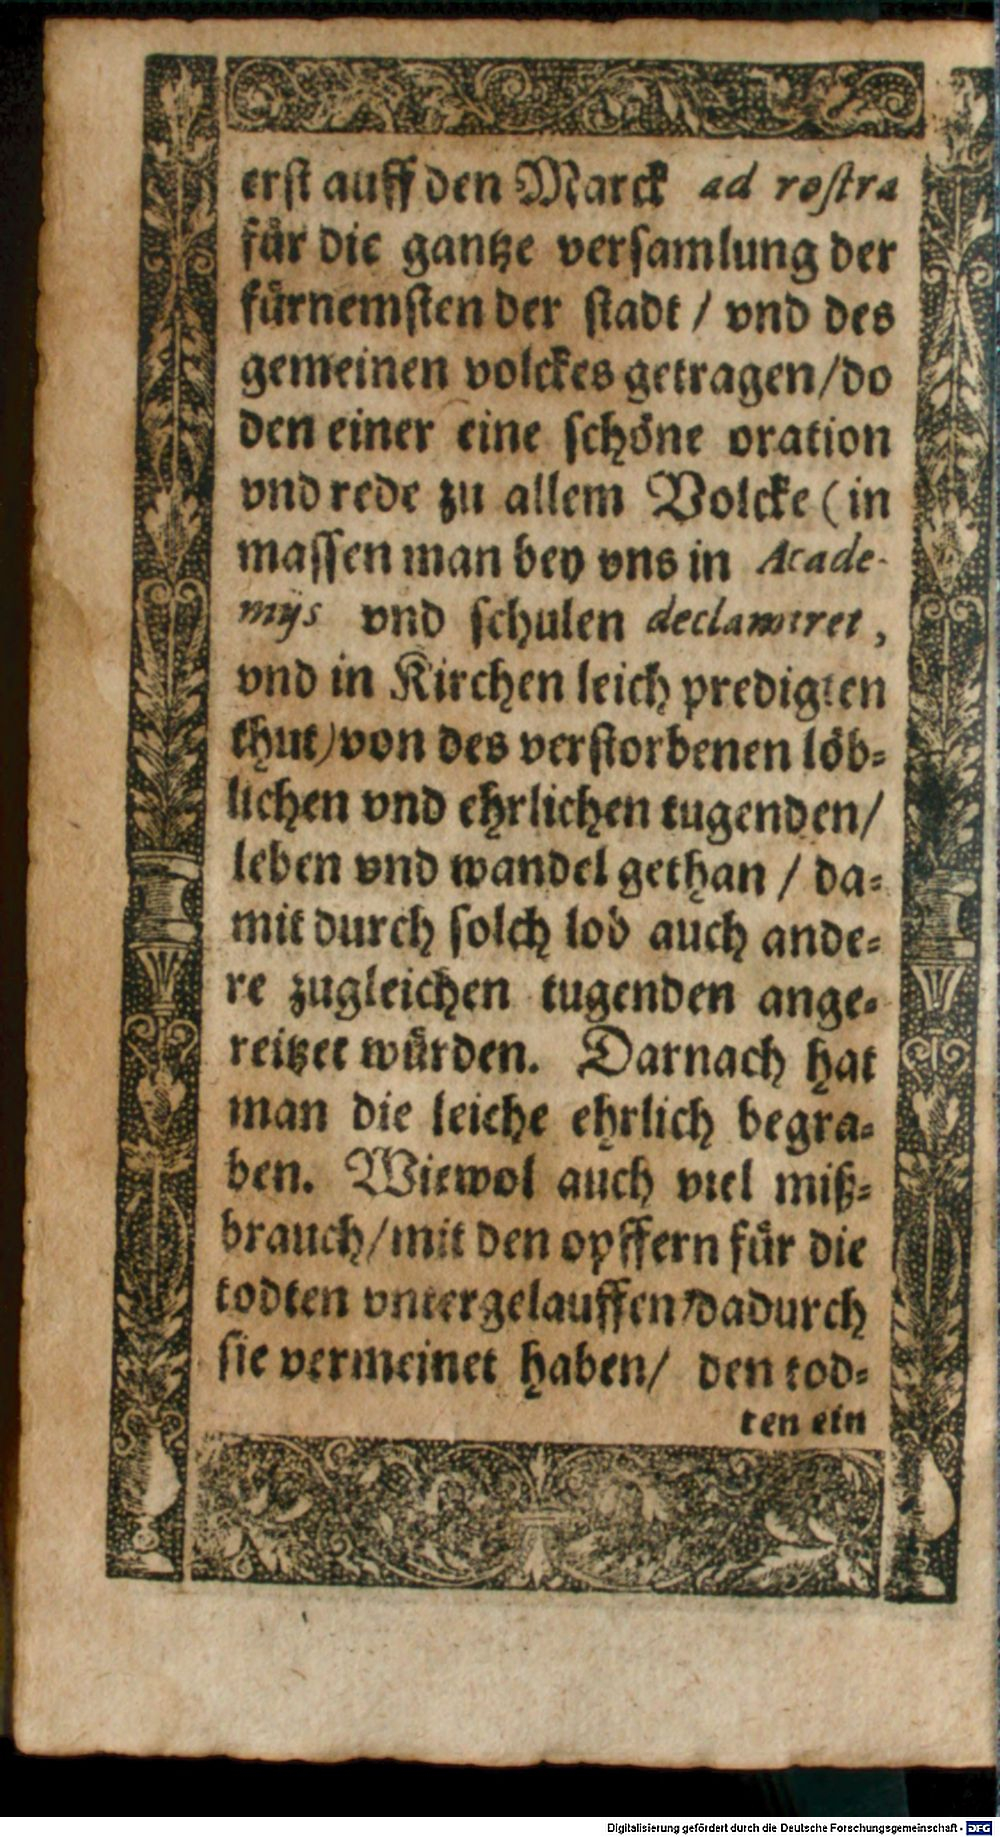 erst auff den Marck ad rostra
für die gantze versamlung der
fürnemsten der stadt / vnd des
gemeinen volckes getragen / do
den einer eine schöne oration
vnd rede zu allem Volcke (in
massen man bey vns in Acade-
mijs vnd schulen declamiret,
vnd in Kirchen leich predigten
thut) von des verstorbenen löb-
lichen vnd ehrlichen tugenden /
leben vnd wandel gethan / da-
mit durch solch lob auch ande-
re zugleichen tugenden ange-
reitzet würden. Darnach hat
man die leiche ehrlich begra-
ben. Wiewol auch viel miß-
brauch / mit den opffern für die
todten vntergelauffen / dadurch
sie vermeinet haben / den tod-
ten ein
Digitalisierung gefördert durch die Deutsche Forschungsgemeinschaft - DFG